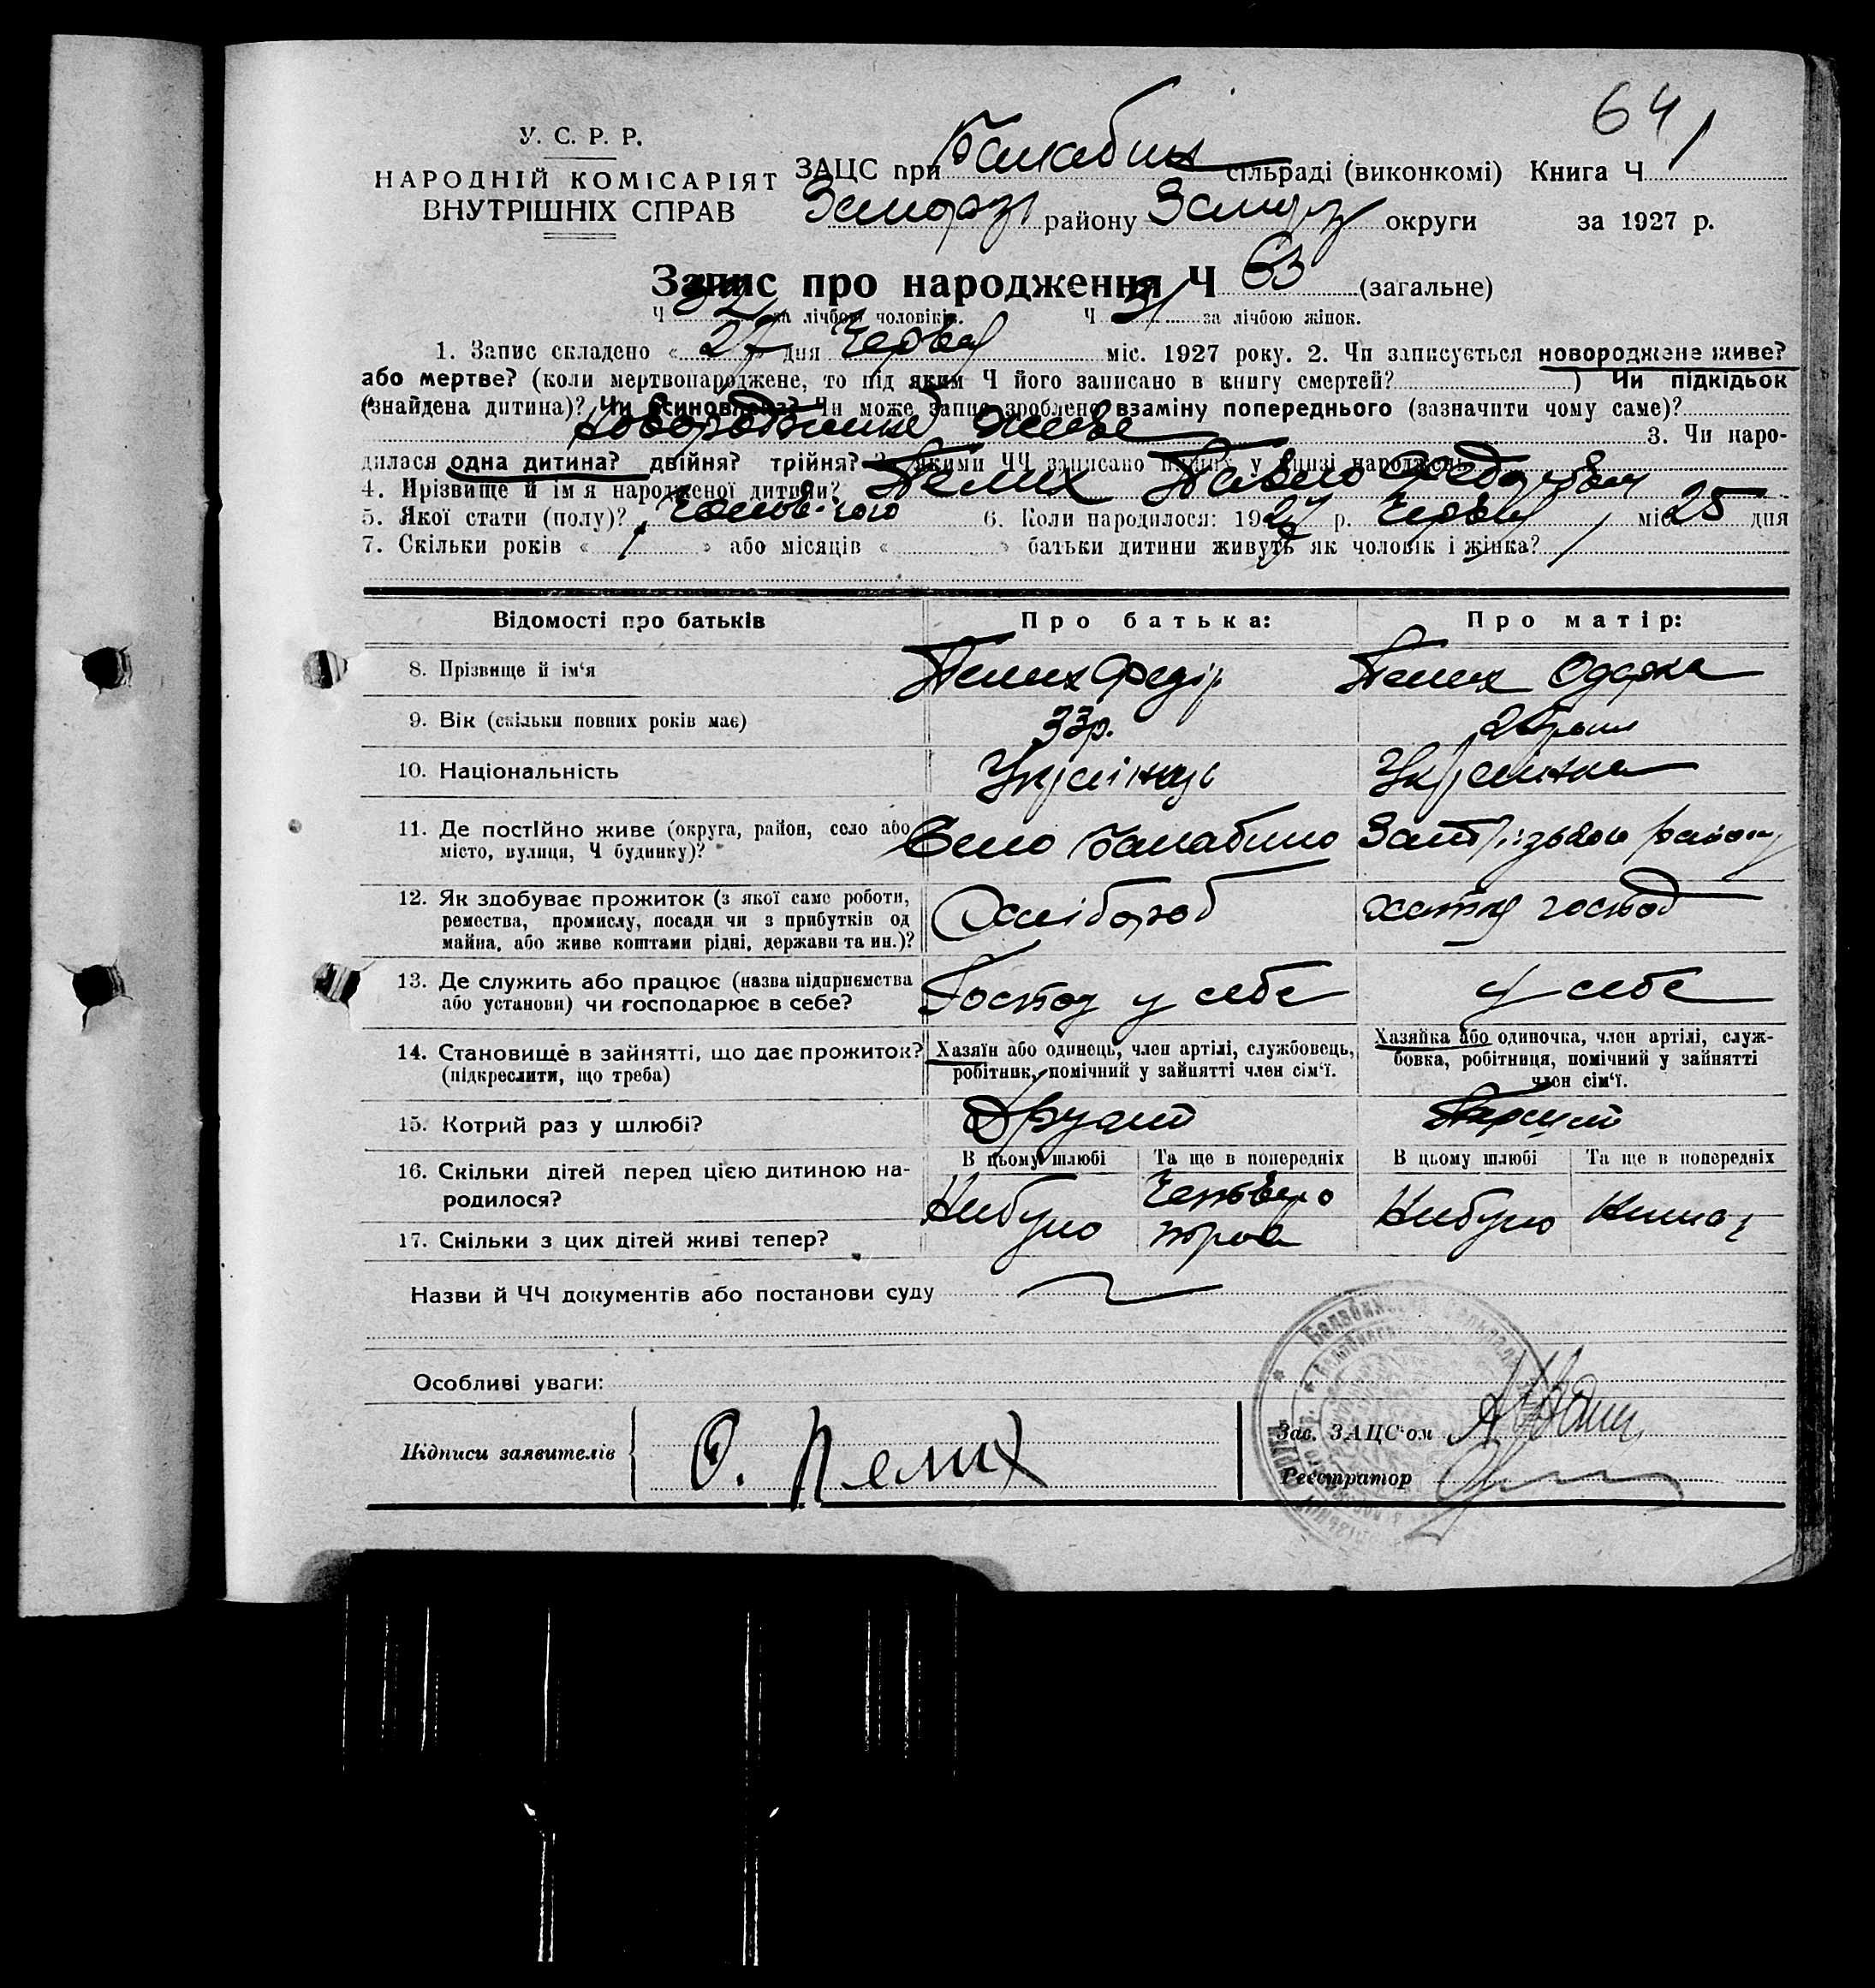 64
У. С. Р. Р.
НАРОДНІЙ КОМІСАРІЯТ
ВНУТРІШНІХ СПРАВ
ЗАЦС при Балабин сільраді (виконкомі) Книга Ч 1
району округи за 1927 р.
Запис про народження Ч 63 (загальне)
Ч 32 за лічбою чоловіків. Ч 31 за лічбою жінок.
1. Запис складено « 27 » дня Червня міс. 1927 року. 2. Чи записується новороджене живе?
або мертве? (коли мертвонароджене, то під яким Ч його записано в книгу смертей? ) Чи підкідьок
(знайдена дитина)? Чи всиновлена? Чи може запис зроблено взаміну попереднього (зазначити чому саме)?
живе 3. Чи наро-
дилася одна дитина? двійня? трійня? якими ЧЧ записано у книзі народжень
4. Прізвище й ім'я народженої дитини? Пелих Павло Федорович
5. Якої стати (полу)? 6. Коли народилося: 1927 р. Червня міс 25 дня
7. Скільки років « » або місяців « » батьки дитини живуть як чоловік і жінка?
Відомості про батьків Про батька: Про матір:
8. Прізвище й ім'я Пелих Федір Пелих Одарка
9. Вік (скільки повних років має) 33р.
10. Національність Українець Українка
11. Де постійно живе (округа, район, село або
місто, вулиця, Ч будинку)? Село Балабино району
12. Як здобуває прожиток (з якої саме роботи,
ремества, промислу, посади чи з прибутків од
майна, або живе коштами рідні, держави та ин.)? Хлібороб хатня господ
13. Де служить або працює (назва підприємства
або установи) чи господарює в себе? Господ у себе у себе
14. Становище в зайнятті, що дає прожиток?
(підкреслити, що треба)
Хазяїн або одинець, член артілі, службовець,
робітник, помічний у зайнятті член сім'ї.
Хазяйка або одиночка, член артілі, служ-
бовка, робітниця, помічний у зайнятті
член сім'ї.
15. Котрий раз у шлюбі? Другий Перший
16. Скільки дітей перед цією дитиною на-
родилося?
В цьому шлюбі Та ще в попередніх В цьому шлюбі Та ще в попередніх
Небуло Четверо Небуло
17. Скільки з цих дітей живі тепер? троє
Назви й ЧЧ документів або постанови суду
Особливі уваги:
Підписи заявителів О. Пелих
Зав. ЗАЦС'ом
Реєстратор